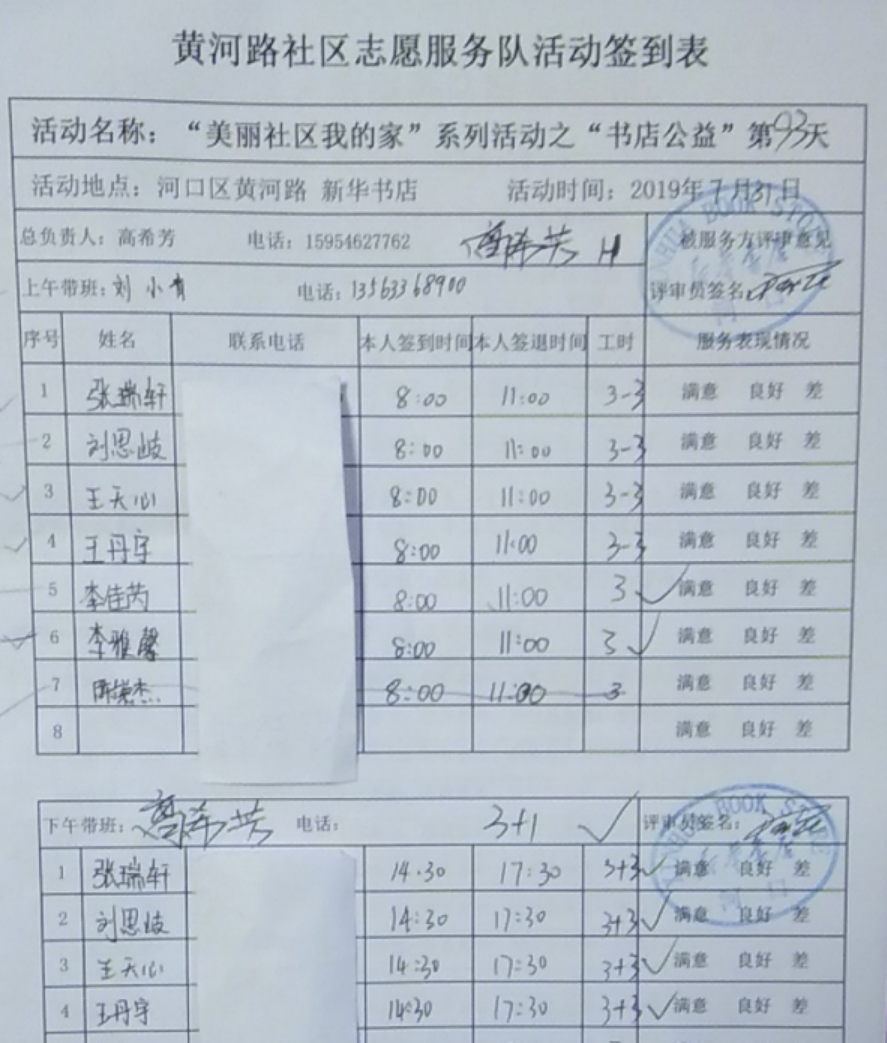 黄河路社区志愿服务队活动签到表
活动名称：“美丽社区我的家”系列活动之“书店公益”第93天
活动地点：河口区黄河路 新华书店 活动时间：2019年7月31日
总负责人：高希芳 电话：15954627762 高希芳 被服务方评审意见
上午带班：刘小青 电话：13563368900 评审员签名：
序号 姓名 联系电话 本人签到时间 本人签退时间 工时 服务表现情况
1 张瑞轩 8:00 11:00 3-3 满意 良好 差
2 刘思岐 8:00 11:00 3-3 满意 良好 差
3 王天心 8:00 11:00 3-3 满意 良好 差
4 王丹宇 8:00 11:00 3-3 满意 良好 差
5 李佳芮 8:00 11:00 3 ✓ 满意 良好 差
6 李雅馨 8:00 11:00 3 ✓ 满意 良好 差
7 8:00 11:00 3 满意 良好 差
8 满意 良好 差
下午带班：高希芳 电话： 3+1 ✓ 评审员签名：
1 张瑞轩 14:30 17:30 3+3 ✓ 满意 良好 差
2 刘思岐 14:30 17:30 3+3 ✓ 满意 良好 差
3 王天心 14:30 17:30 3+3 ✓ 满意 良好 差
4 王丹宇 14:30 17:30 3+3 ✓ 满意 良好 差